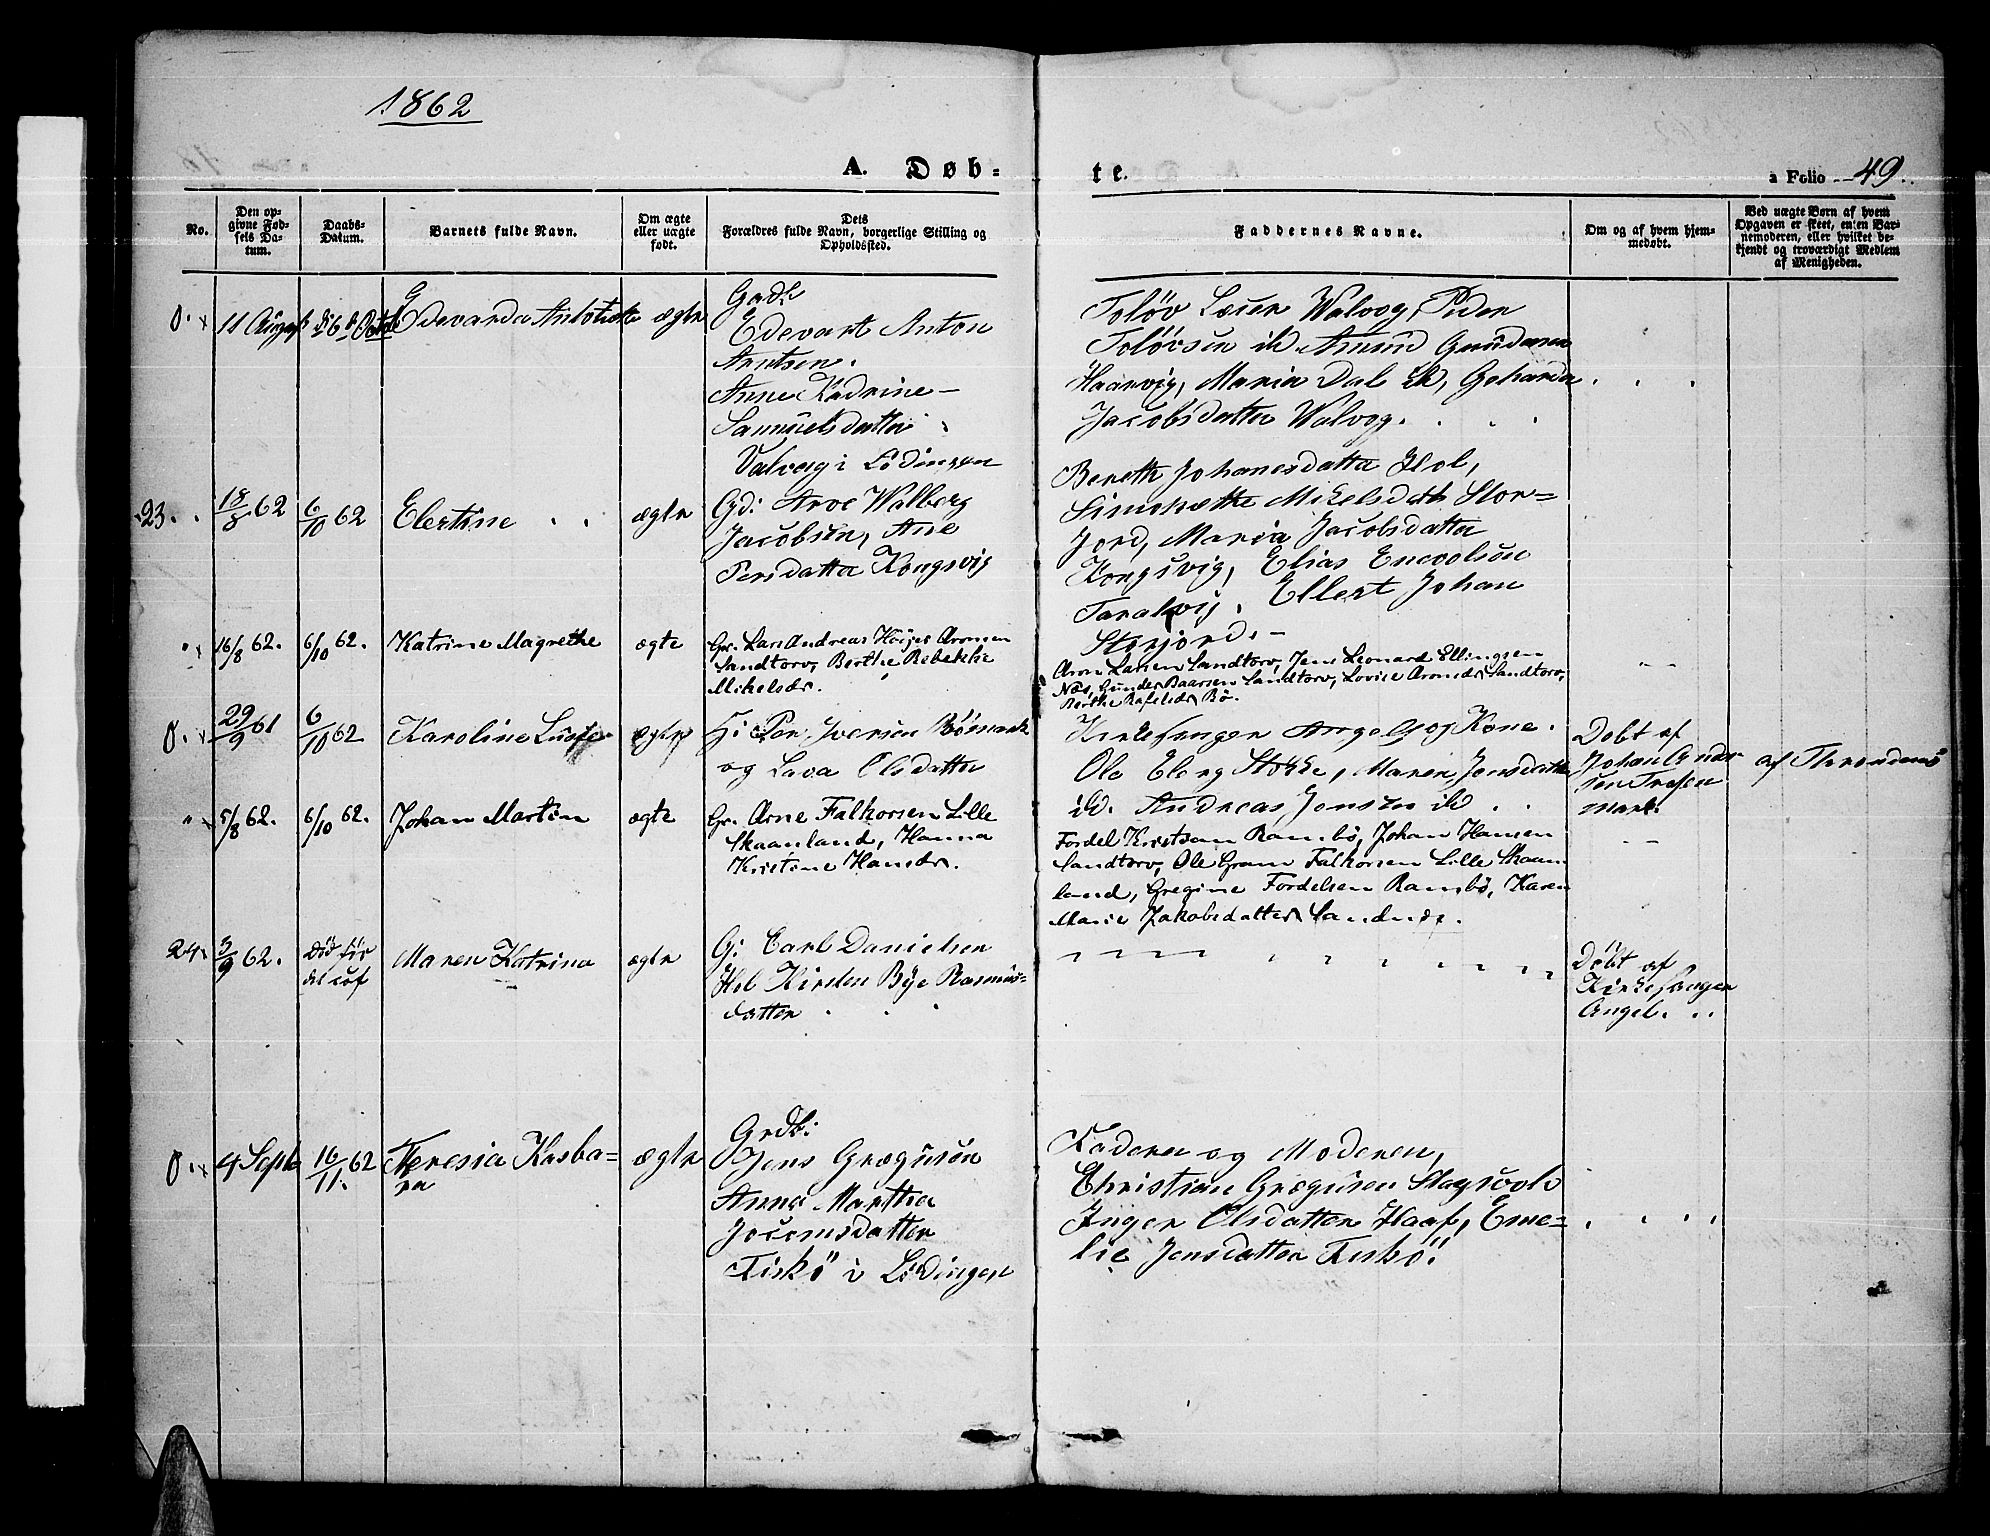 1862
A. Døb-
te.
a Folio 49.
No.
Den op-
givne Fød-
sels Da-
tum.
Daabs-
Datum.
Barnets fulde Navn.
Om ægte
eller uægte
født.
Dets
Forældres fulde Navn, borgerlige Stilling og
Opholdssted.
Faddernes Navne.
Om og af hvem hjem-
medøbt.
Ved uægte Børn af hvem
Opgaven er skeet, enten Bar-
nemoderen, eller hvilket be-
kjendt og troværdigt Medlem
af Menigheden.
0. 11 August 6
Edevarda ægte
Gadb
Edevart Anton
Arntsen.
Anne Kadrine
Samuelsdatter
Valvaag i Lødingen
Toløv Walvog, Peder
Toløvsen ib Amund Gundersen
Haarvig, Maria Dal ib, Geharda
Jacobsdatter Walvog.
23. 18/8 62 6/10 62 Elertine ægte
Gd: Arve Walberg
Jacobsen, Ane
Persdatter Kongsvig
Bereth Johanesdatter Hol,
Mikelsdatter Stor-
jord, Maria Jacobsdatter
Kongsvig, Elias Encvolsen
Ellert Johan
Storjord.
" 16/8 62. 6/10 62. Katrine Magrethe ægte
Gr. Lars Andreas Aronsen
Sandtorv, Berthe Rebekke
Mikelsdr.
Aron Larsen Sandtorv, Jens Leonard Ellingsen
Næs, Gunder Baarsen Sandtorv, Lovise Aronsdr Sandtorv,
Berthe Rafelsdr Bø.
0. 29/9 61 6/10 62 Karoline ægte
Per Iversen
og Lava Olsdatter
Kirkesanger Angel og Kone.
Ole Elerg Stokke, Maren Jensdatter
ib. Andreas Jensen ib
Døbt af
Johan Andr
sen
mark.
af Throndenes
" 5/8 62. 6/10 62. Johan Martin ægte
Gr. Arne Falkorsen Lille
Skaanland, Hanna
Kristine Hansdr.
Fordel Kristsen Rambø, Johan Hansen
Sandtorv, Ole Gram Falkorsen Lille Skaan
land, Gregine Fordelsen Rambø, Karen
Marie Jakobsdatter Sandnæs.
24. 3/9 62. Død før
Maren Katrina ægte
G: Carl Danielsen
Hol Kirsten Bye Rasmus-
datter
Døbt af
Kirkesanger
Angel.
0. 4 Septb 16/11. 62 Teresia Kasba-
ra ægte
Grdb:
Jens Grægusøn
Anna Martha
Jocomsdatter
Fiskø i Lødingen
Faderen og Moderen,
Christian Grægusen
Inger Olsdatter Haaf, Eme-
lie Jensdatter Fiskø.